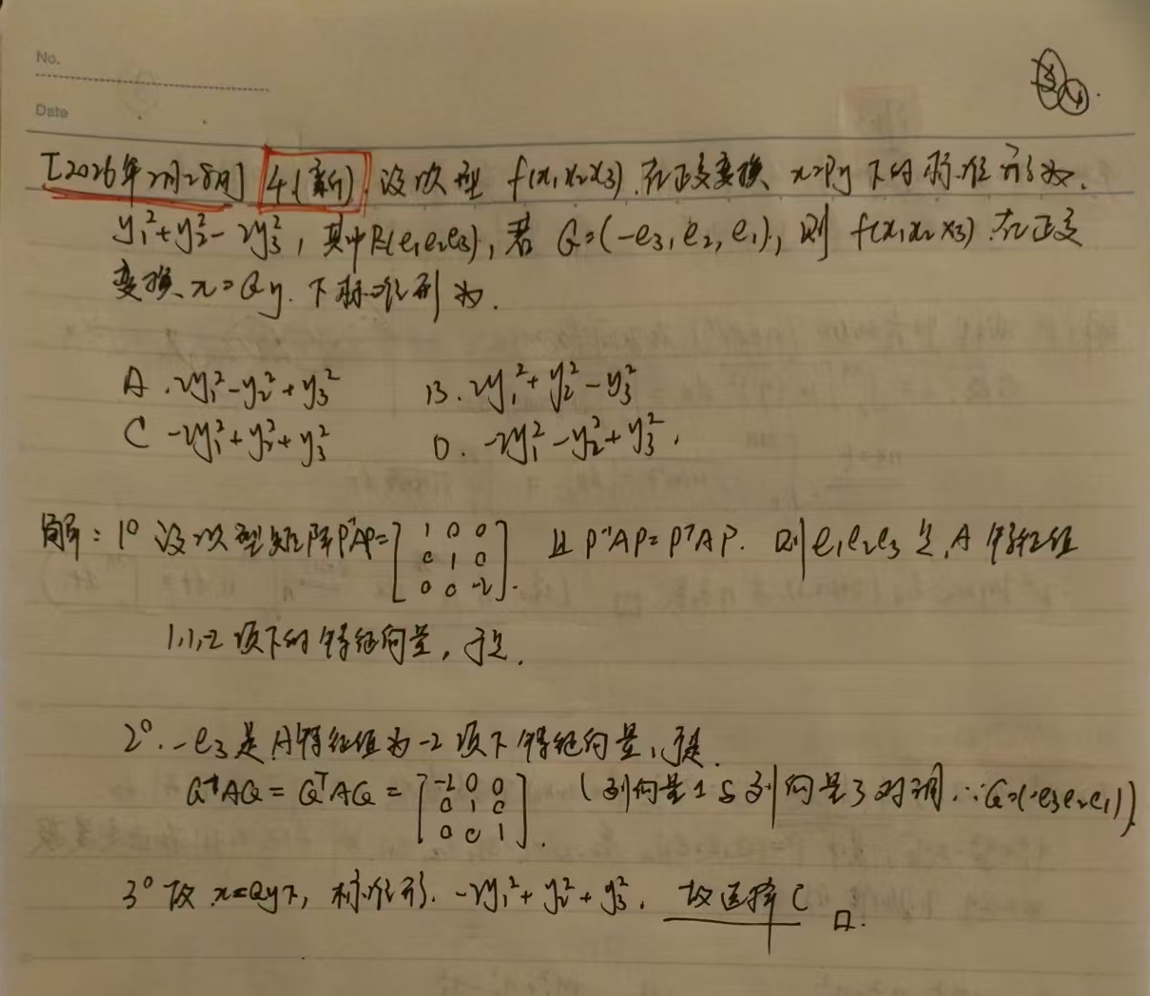 No.
Date
34.
[2026年2月28日] 4(新). 设二次型 f(x₁,x₂x₃). 在正交变换 x=Py 下的标准形为.
y₁²+y₂²-2y₃², 其中P=(e₁e₂e₃), 若 Q=(-e₃,e₂,e₁), 则 f(x₁x₂x₃). 在正交
变换 x=Qy. 下标准型为.
A. 2y₁²-y₂²+y₃² B. 2y₁²+y₂²-y₃²
C -2y₁²+y₂²+y₃² D. -2y₁²-y₂²+y₃².
解: 1° 设二次型矩阵P⁻¹AP=[1 0 0
0 1 0
0 0 -2]. 且 P⁻¹AP=PᵀAP. 则e₁e₂e₃是A特征值
1,1,-2项下的特征向量, 于是.
2°. -e₃是A特征值为-2项下特征向量, 于是.
Q⁻¹AQ=QᵀAQ=[-2 0 0
0 1 0
0 0 1]. (列向量1与列向量3对调∴Q=(-e₃e₂e₁)).
3° 故 x=Qy下, 标准形. -2y₁²+y₂²+y₃². 故选择C □.